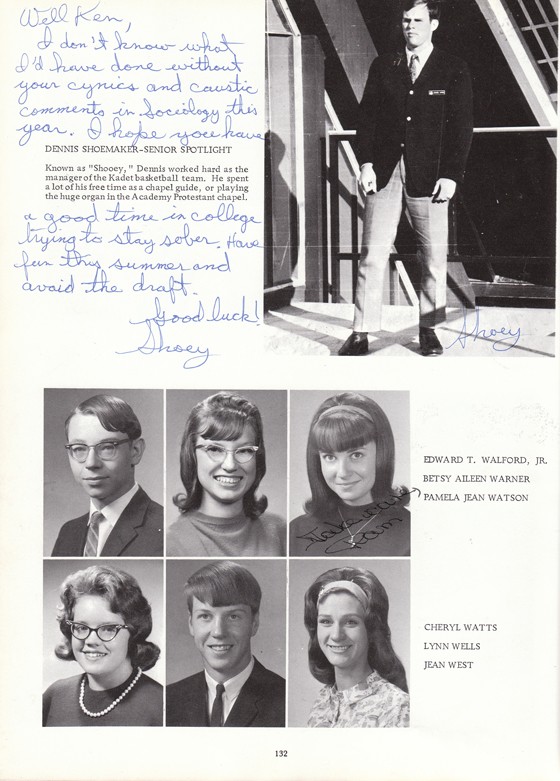 Well Ken,
I don't know what
I'd have done without
your cynics and caustic
comments in Sociology this
year. I hope you have
DENNIS SHOEMAKER-SENIOR SPOTLIGHT
Known as "Shooey," Dennis worked hard as the
manager of the Kadet basketball team. He spent
a lot of his free time as a chapel guide, or playing
the huge organ in the Academy Protestant chapel.
a good time in college
trying to stay sober. Have
fun this summer and
avoid the draft.
Good luck!
Shoey
Shoey
EDWARD T. WALFORD, JR.
BETSY AILEEN WARNER
PAMELA JEAN WATSON
Pam
CHERYL WATTS
LYNN WELLS
JEAN WEST
132